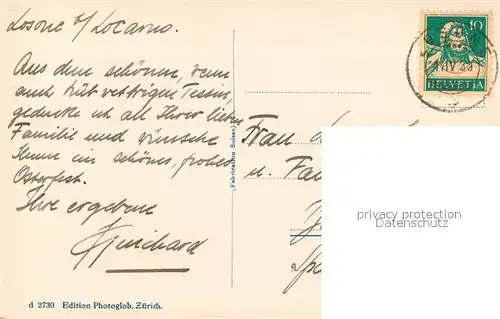 Losone b/ Locarno.
Aus dem schönen, wenn
auch trüb Tessin,
gedenke ich all Ihrer lieben
Familie und wünsche
Ihnen ein schönes, frohes
Osterfest.
Ihre ergebene
Guichard
d 2730 Edition Photoglob, Zürich.
(Fabrication Suisse)
10
HELVETIA
Frau
u. Fa
privacy protection
Datenschutz